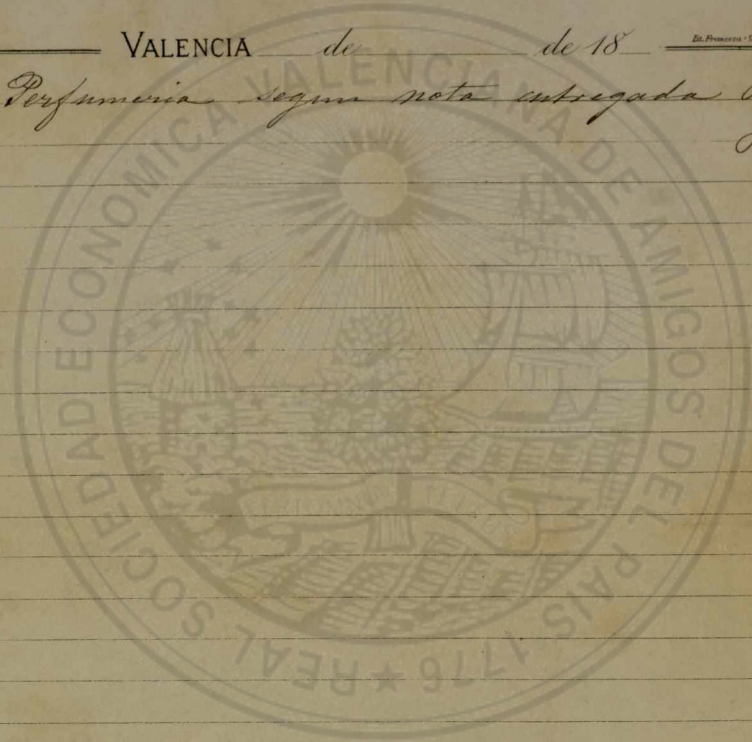 VALENCIA de de 18
Perfumeria segun nota entregada
REAL SOCIEDAD ECONOMICA VALENCIANA DE AMIGOS DEL PAIS 1776